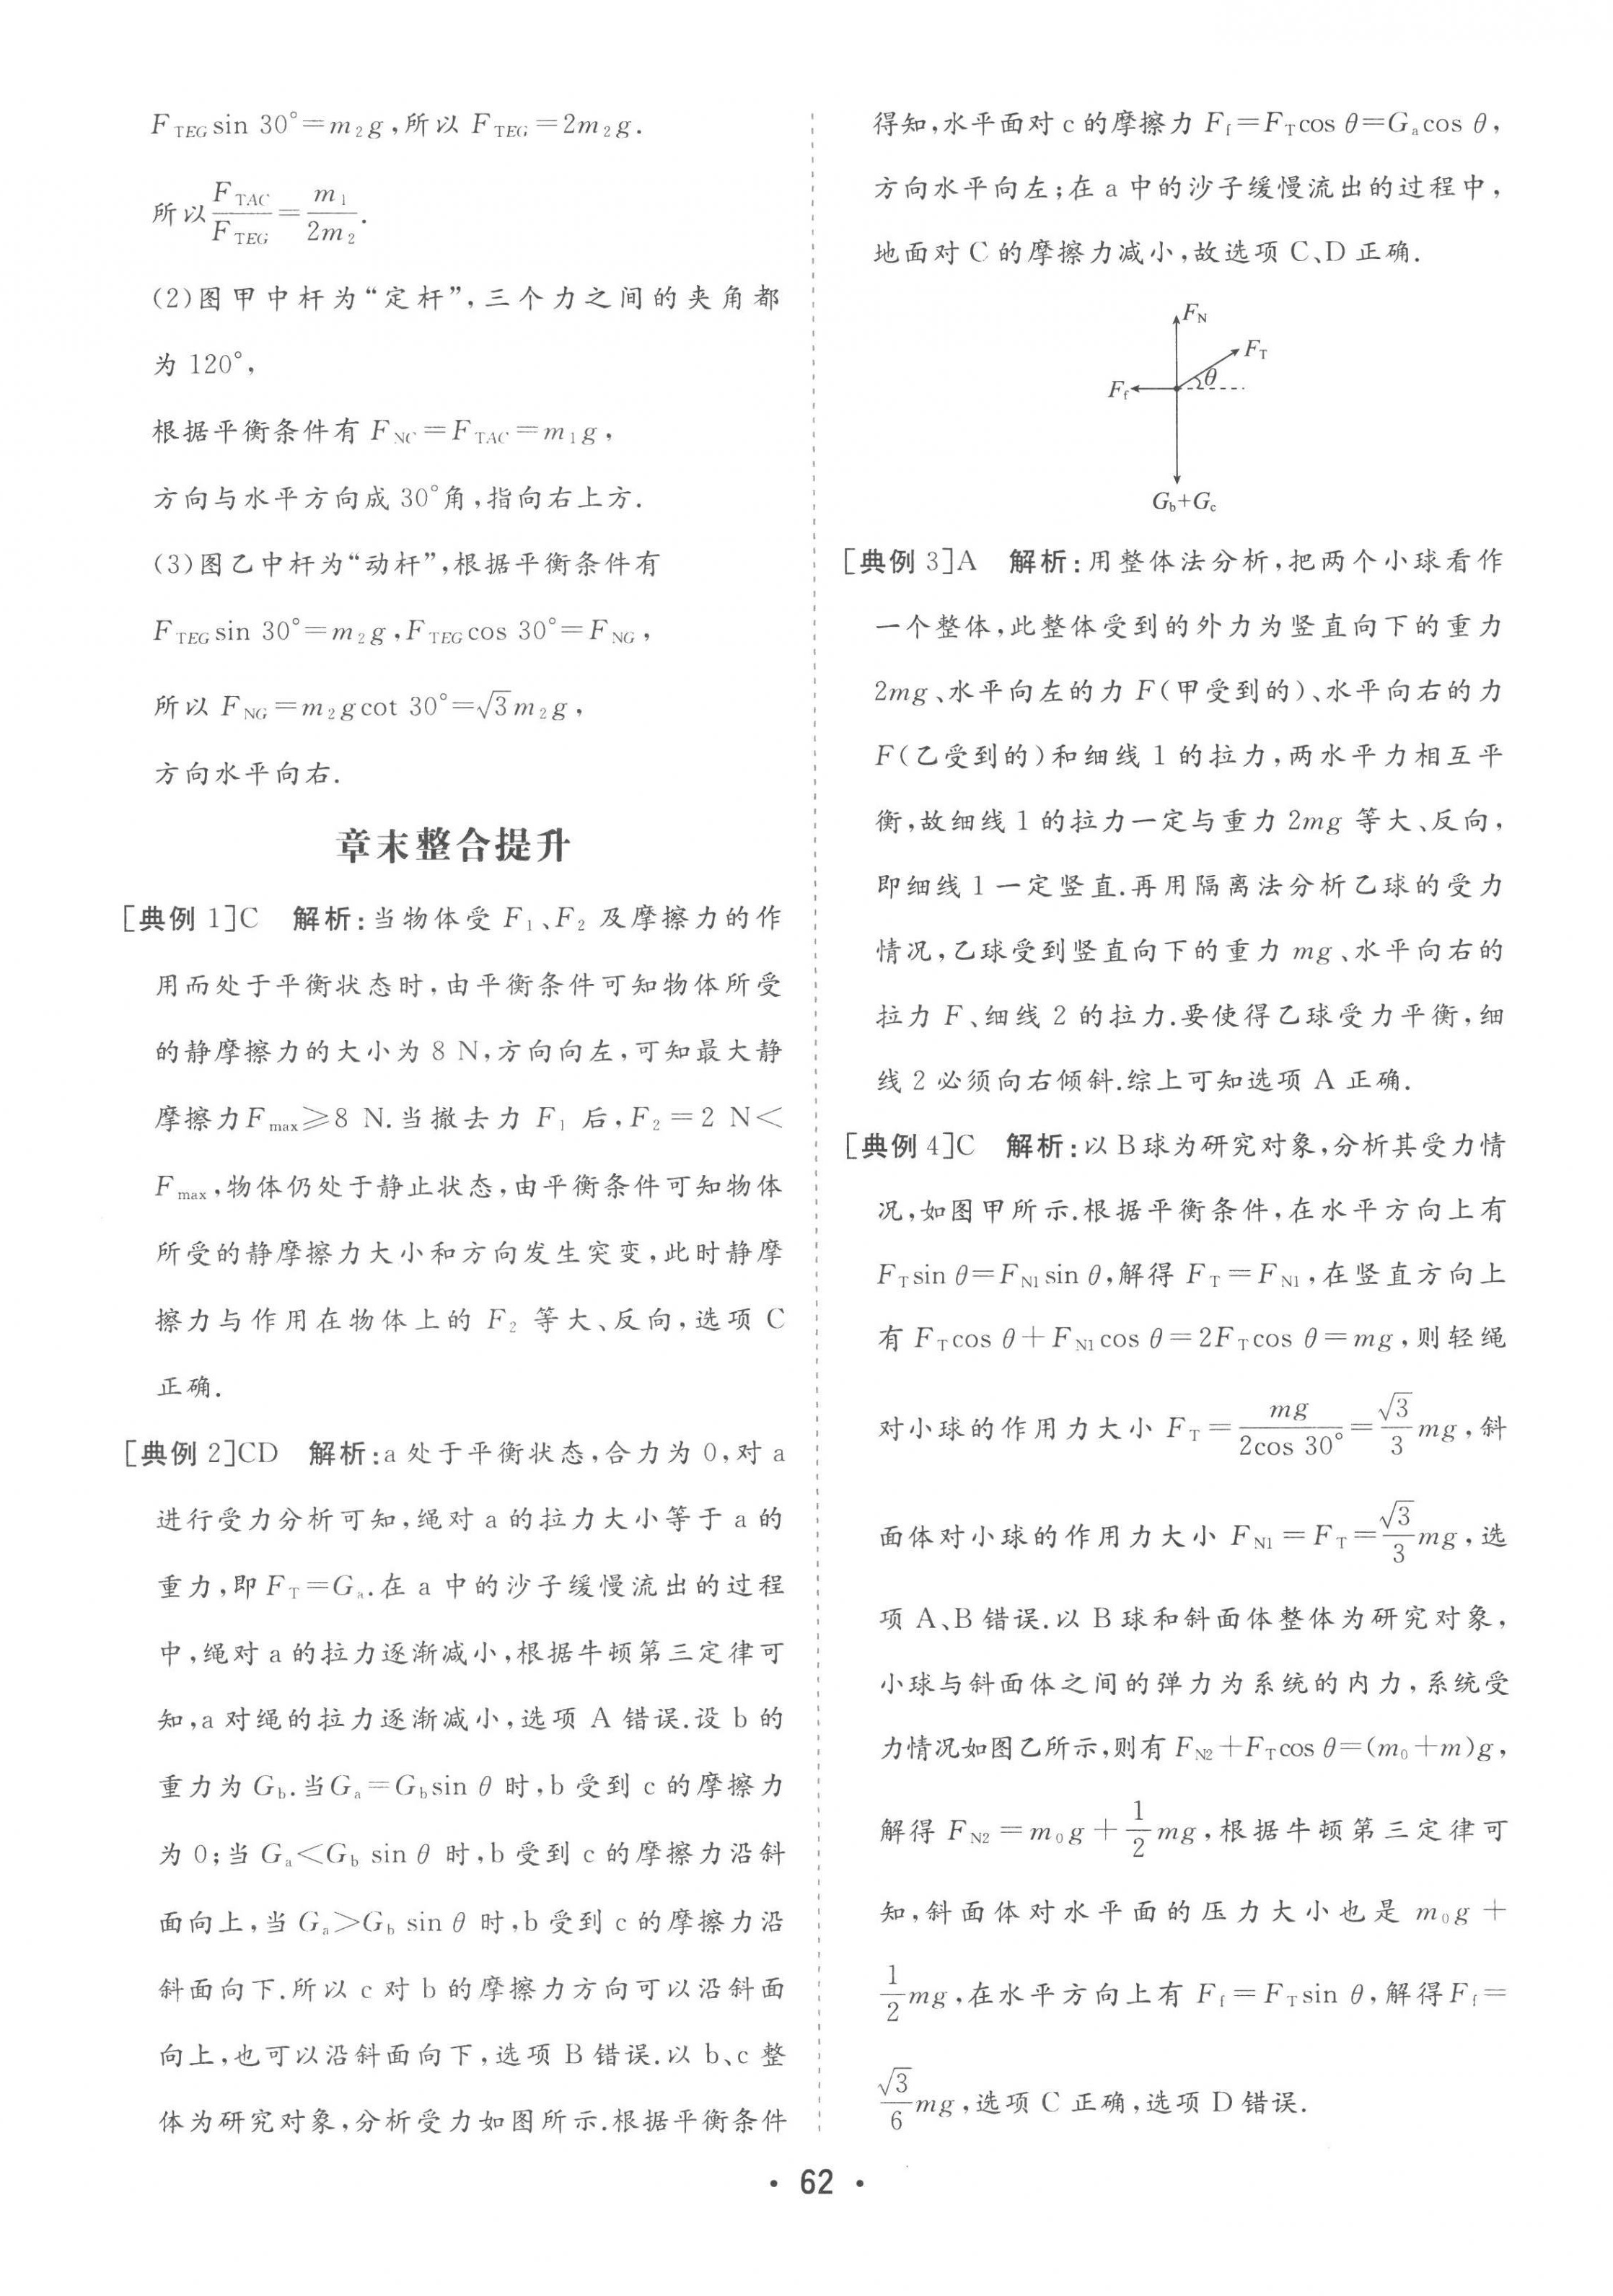 F_TEG sin 30°=m₂g,所以 F_TEG=2m₂g.
所以F_TAC/F_TEG=m₁/2m₂.
(2)图甲中杆为“定杆”,三个力之间的夹角都
为 120°,
根据平衡条件有 F_NC=F_TAC=m₁g,
方向与水平方向成 30°角,指向右上方.
(3)图乙中杆为“动杆”,根据平衡条件有
F_TEG sin 30°=m₂g,F_TEG cos 30°=F_NG,
所以 F_NG=m₂gcot 30°=√3m₂g,
方向水平向右.
章末整合提升
[典例 1]C 解析:当物体受 F₁、F₂ 及摩擦力的作
用而处于平衡状态时,由平衡条件可知物体所受
的静摩擦力的大小为 8 N,方向向左,可知最大静
摩擦力F_max≥8 N.当撤去力 F₁ 后,F₂=2 N<
F_max,物体仍处于静止状态,由平衡条件可知物体
所受的静摩擦力大小和方向发生突变,此时静摩
擦力与作用在物体上的 F₂ 等大、反向,选项 C
正确.
[典例 2]CD 解析:a 处于平衡状态,合力为 0,对 a
进行受力分析可知,绳对 a 的拉力大小等于 a 的
重力,即 F_T=G_a.在 a 中的沙子缓慢流出的过程
中,绳对 a 的拉力逐渐减小,根据牛顿第三定律可
知,a 对绳的拉力逐渐减小,选项 A 错误.设 b 的
重力为 G_b.当G_a=G_b sin θ 时,b 受到 c 的摩擦力
为 0;当 G_a<G_b sin θ 时,b 受到 c 的摩擦力沿斜
面向上,当 G_a>G_b sin θ 时,b 受到 c 的摩擦力沿
斜面向下.所以 c 对 b 的摩擦力方向可以沿斜面
向上,也可以沿斜面向下,选项 B 错误.以 b、c 整
体为研究对象,分析受力如图所示.根据平衡条件
得知,水平面对 c 的摩擦力 F_f=F_T cos θ=G_a cos θ,
方向水平向左;在 a 中的沙子缓慢流出的过程中,
地面对 C 的摩擦力减小,故选项 C、D 正确.
F_N
F_T
F_f
θ
G_b+G_c
[典例 3]A 解析:用整体法分析,把两个小球看作
一个整体,此整体受到的外力为竖直向下的重力
2mg、水平向左的力 F(甲受到的)、水平向右的力
F(乙受到的)和细线 1 的拉力,两水平力相互平
衡,故细线 1 的拉力一定与重力 2mg 等大、反向,
即细线 1 一定竖直.再用隔离法分析乙球的受力
情况,乙球受到竖直向下的重力 mg、水平向右的
拉力 F、细线 2 的拉力.要使得乙球受力平衡,细
线 2 必须向右倾斜.综上可知选项 A 正确.
[典例 4]C 解析:以 B 球为研究对象,分析其受力情
况,如图甲所示.根据平衡条件,在水平方向上有
F_T sin θ=F_N1 sin θ,解得 F_T=F_N1,在竖直方向上
有 F_T cos θ+F_N1 cos θ=2F_T cos θ=mg,则轻绳
对小球的作用力大小 F_T=mg/2cos 30°=√3/3 mg,斜
面体对小球的作用力大小 F_N1=F_T=√3/3 mg,选
项 A、B 错误.以 B 球和斜面体整体为研究对象,
小球与斜面体之间的弹力为系统的内力,系统受
力情况如图乙所示,则有 F_N2+F_T cos θ=(m₀+m)g,
解得 F_N2=m₀g+1/2 mg,根据牛顿第三定律可
知,斜面体对水平面的压力大小也是 m₀g+
1/2 mg,在水平方向上有 F_f=F_T sin θ,解得F_f=
√3/6 mg,选项 C 正确,选项 D 错误.
· 62 ·